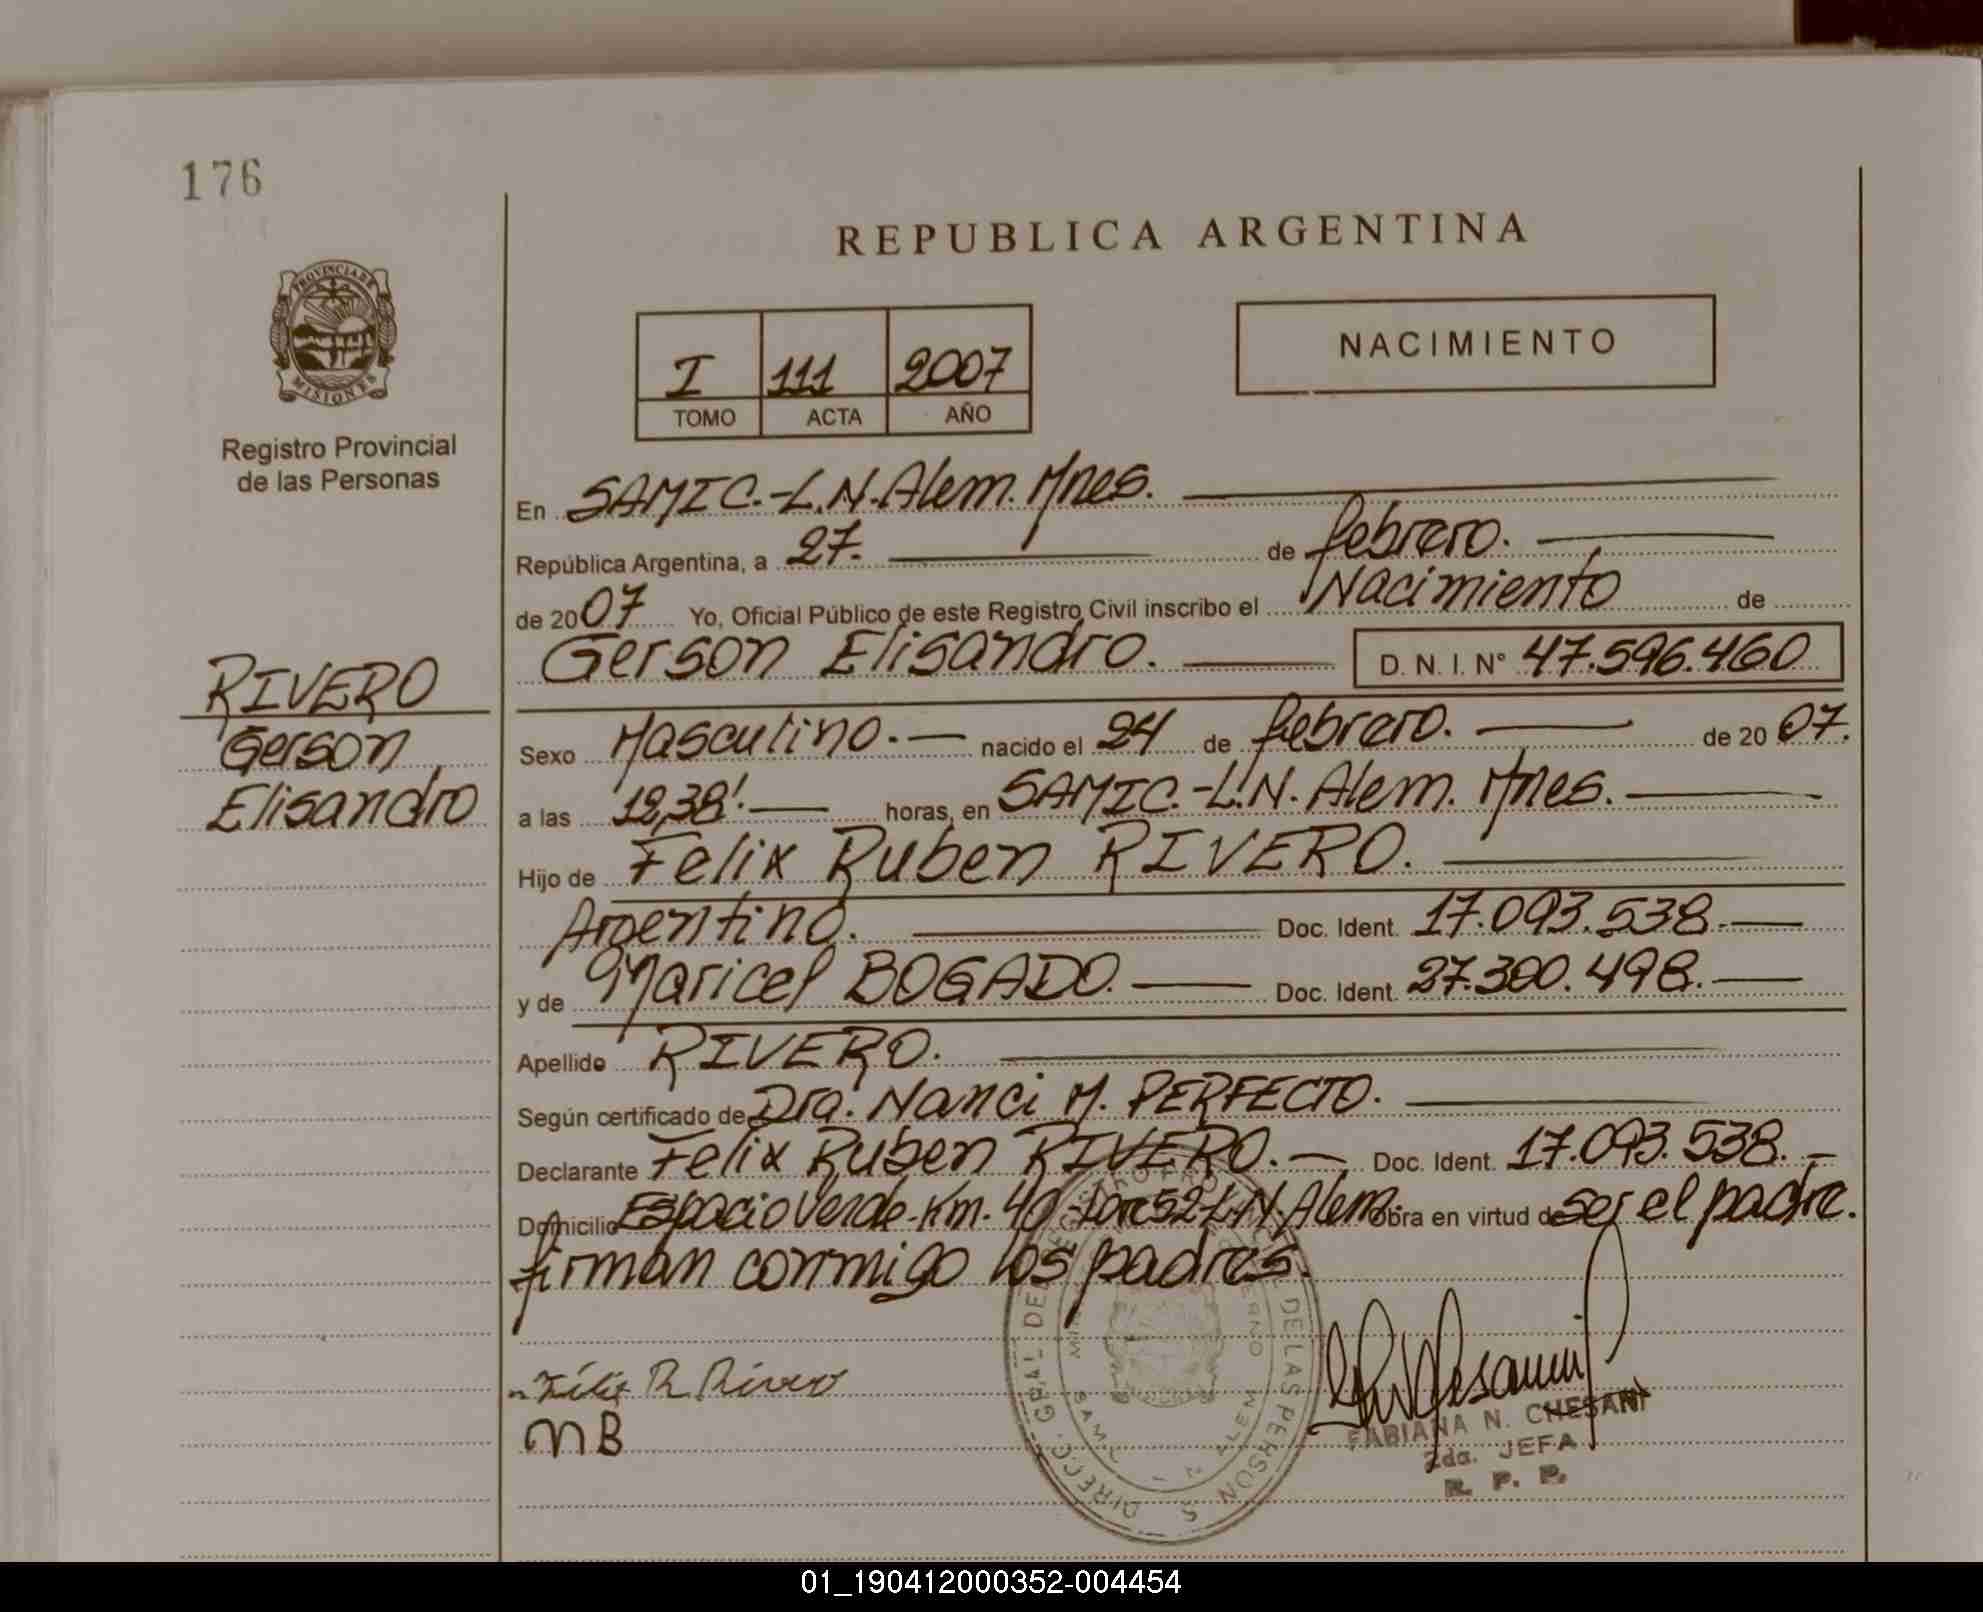 176
REPUBLICA ARGENTINA
PROVINCIA DE
MISIONES
Registro Provincial
de las Personas
I 111 2007
TOMO ACTA AÑO
NACIMIENTO
En SAMIC.-L.N.Alem. Mnes.
República Argentina, a 27. de febrero.
de 2007 Yo, Oficial Público de este Registro Civil inscribo el Nacimiento de
Gerson Elisandro. D. N. I. Nº 47.596.460
RIVERO
Gerson
Elisandro
Sexo Masculino.- nacido el 24 de febrero. de 2007.
a las 12,38'. horas, en SAMIC.-L.N. Alem. Mnes.
Hijo de Felix Ruben RIVERO.
Argentino. Doc. Ident. 17.093.538.-
y de Maricel BOGADO. Doc. Ident. 27.300.498.-
Apellido RIVERO.
Según certificado de Dra. Nanci M. PERFECTO.
Declarante Felix Ruben RIVERO.- Doc. Ident. 17.093.538.-
Domicilio Espacio Verde-Km. 40 52-L.N.Alem. Obra en virtud de ser el padre.
firman conmigo los padres.
R. Rivero
MB
FABIANA N. CHESANI
2da. JEFA
R. P. P.
01_190412000352-004454